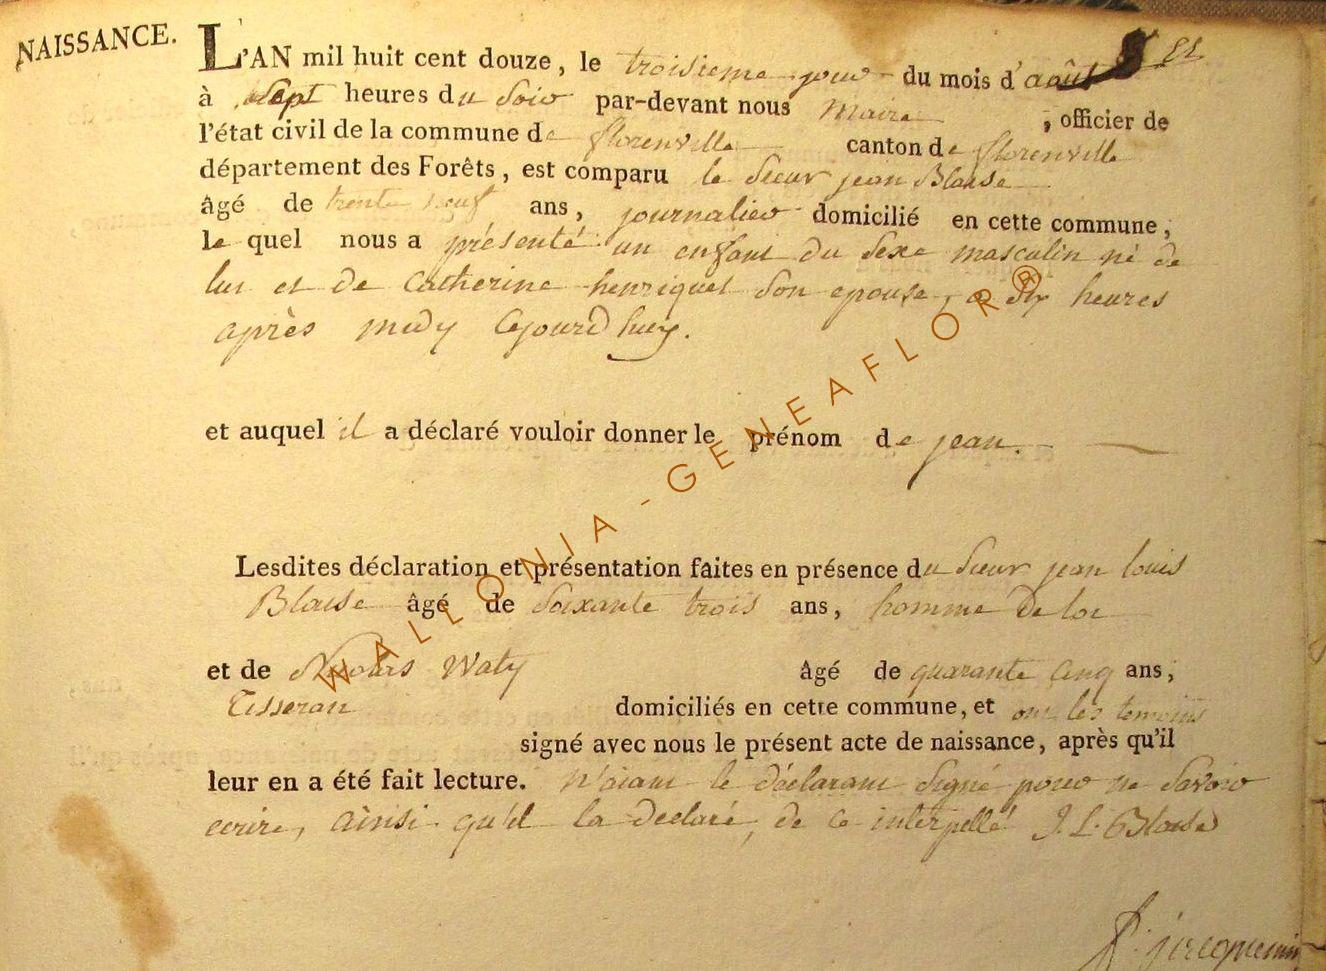 NAISSANCE.
L'AN mil huit cent douze, le troisieme jour du mois d'août
à sept heures du Soir par-devant nous Maire, officier de
l'état civil de la commune de florenville canton de florenville
département des Forêts, est comparu le Sieur jean Blaise
âgé de trente neuf ans, journalier domicilié en cette commune,
le quel nous a présenté un enfant du Sexe masculin né de
lui et de Catherine henriquet Son epouse, a Six heures
après midy Cejourdhuy.
et auquel il a déclaré vouloir donner le prénom de jean.
Lesdites déclaration et présentation faites en présence du Sieur jean louis
Blaise âgé de Soixante trois ans, homme de loi
et de Nicolas Waty âgé de quarante Cinq ans,
Tisseran domiciliés en cette commune, et ont les temoins
signé avec nous le présent acte de naissance, après qu'il
leur en a été fait lecture. N'aiant le déclarant Signé pour ne Savoir
ecrire, ainsi qu'il la declaré, de ce interpellé J. L. Blaise
jacquemin
WALLONIA-GENEAFLOR®